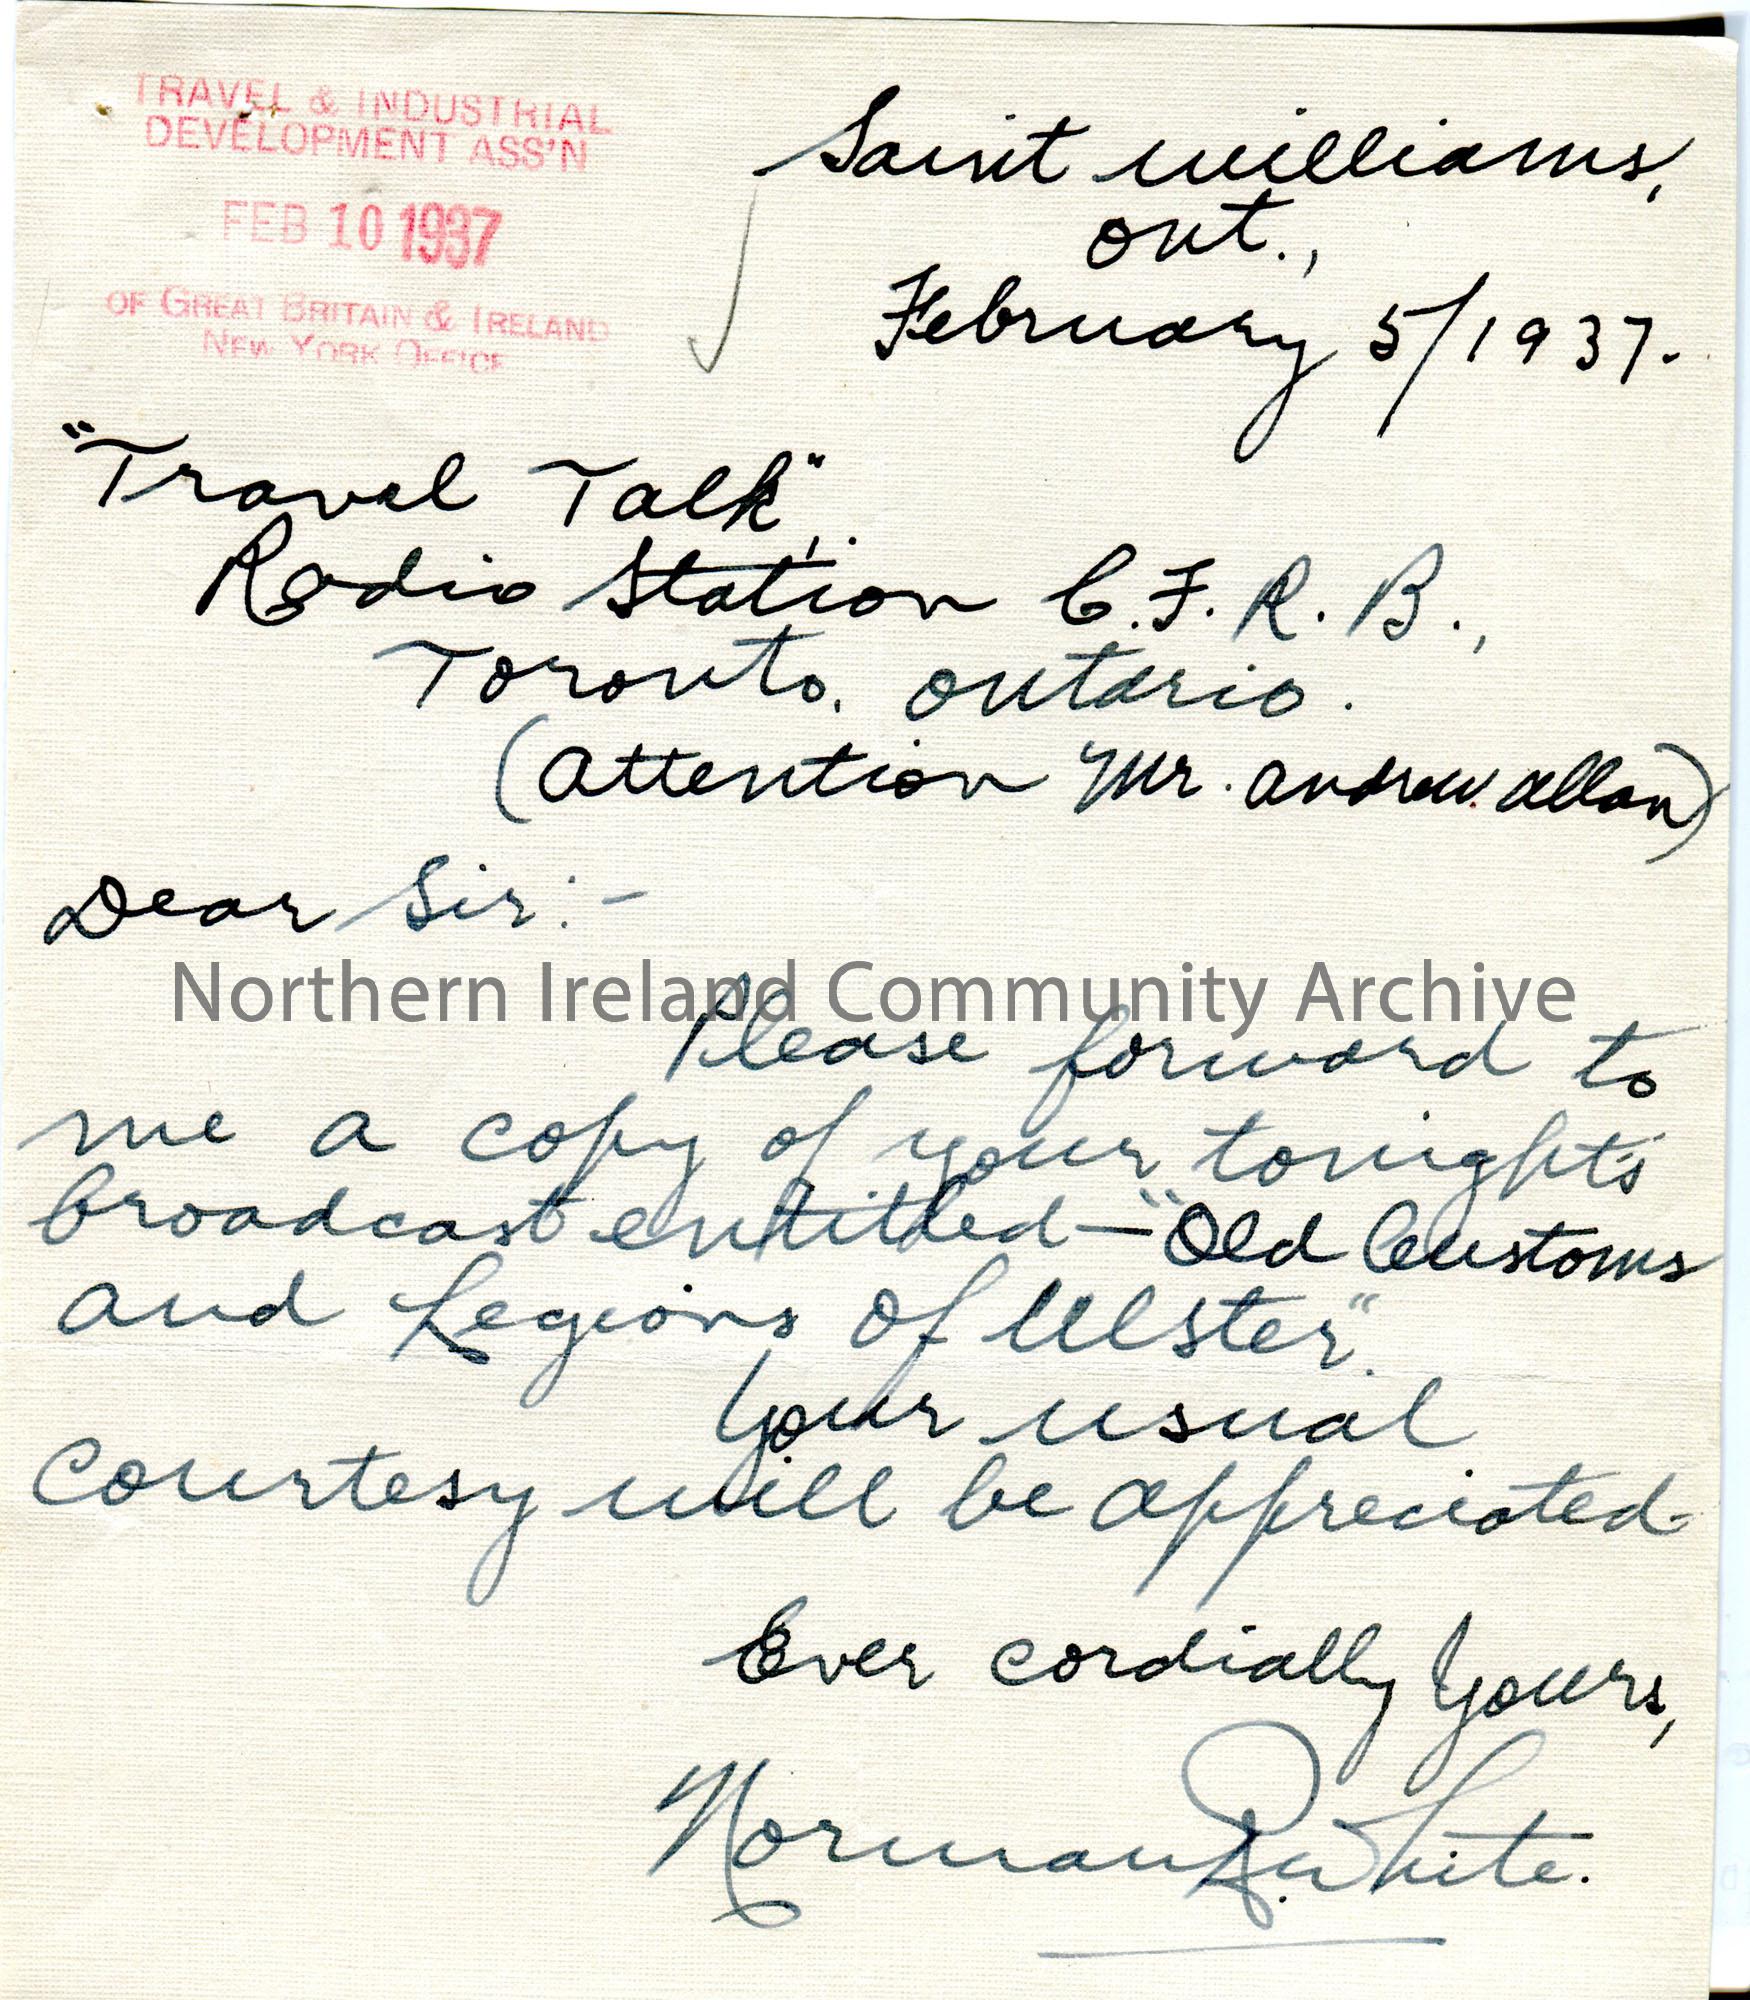 TRAVEL & INDUSTRIAL
DEVELOPMENT ASS'N
FEB 10 1937
OF GREAT BRITAIN & IRELAND
NEW YORK OFFICE
Saint Williams,
Ont.,
February 5/1937.
"Travel Talk",
Radio Station C.F.R.B.,
Toronto, Ontario.
(Attention Mr. Andrew Allan)
Dear Sir:-
Northern Ireland Community Archive
Please forward to
me a copy of your tonight's
broadcast entitled—"Old Customs
and Legions of Ulster".
Your usual
courtesy will be appreciated.
Ever cordially yours,
Norman R. White.